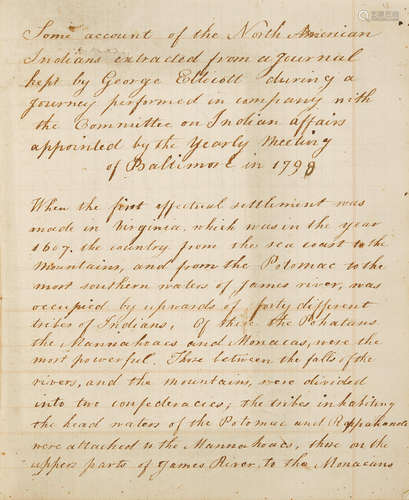 Some account of the North American
Indians extracted from a Journal
kept by George Ellicott during a
journey performed in company with
the Committee on Indian affairs
appointed by the Yearly Meeting
of Baltimore in 1799
When the first effectual settlement was
made in Virginia, which was in the year
1607. the country from the sea coast to the
Mountains, and from the Potomac to the
most southern waters of James river, was
occupied by upwards of forty different
tribes of Indians, Of these the Pohatans
the Mannahoacs and Monacas, were the
most powerful. Those between the falls of the
rivers, and the mountains, were divided
into two confederacies; the tribes inhabiting
the head waters of the Potomac and Rappahanoc
were attached to the Mannahoacs, those on the
uppers parts of James River, to the Monacans